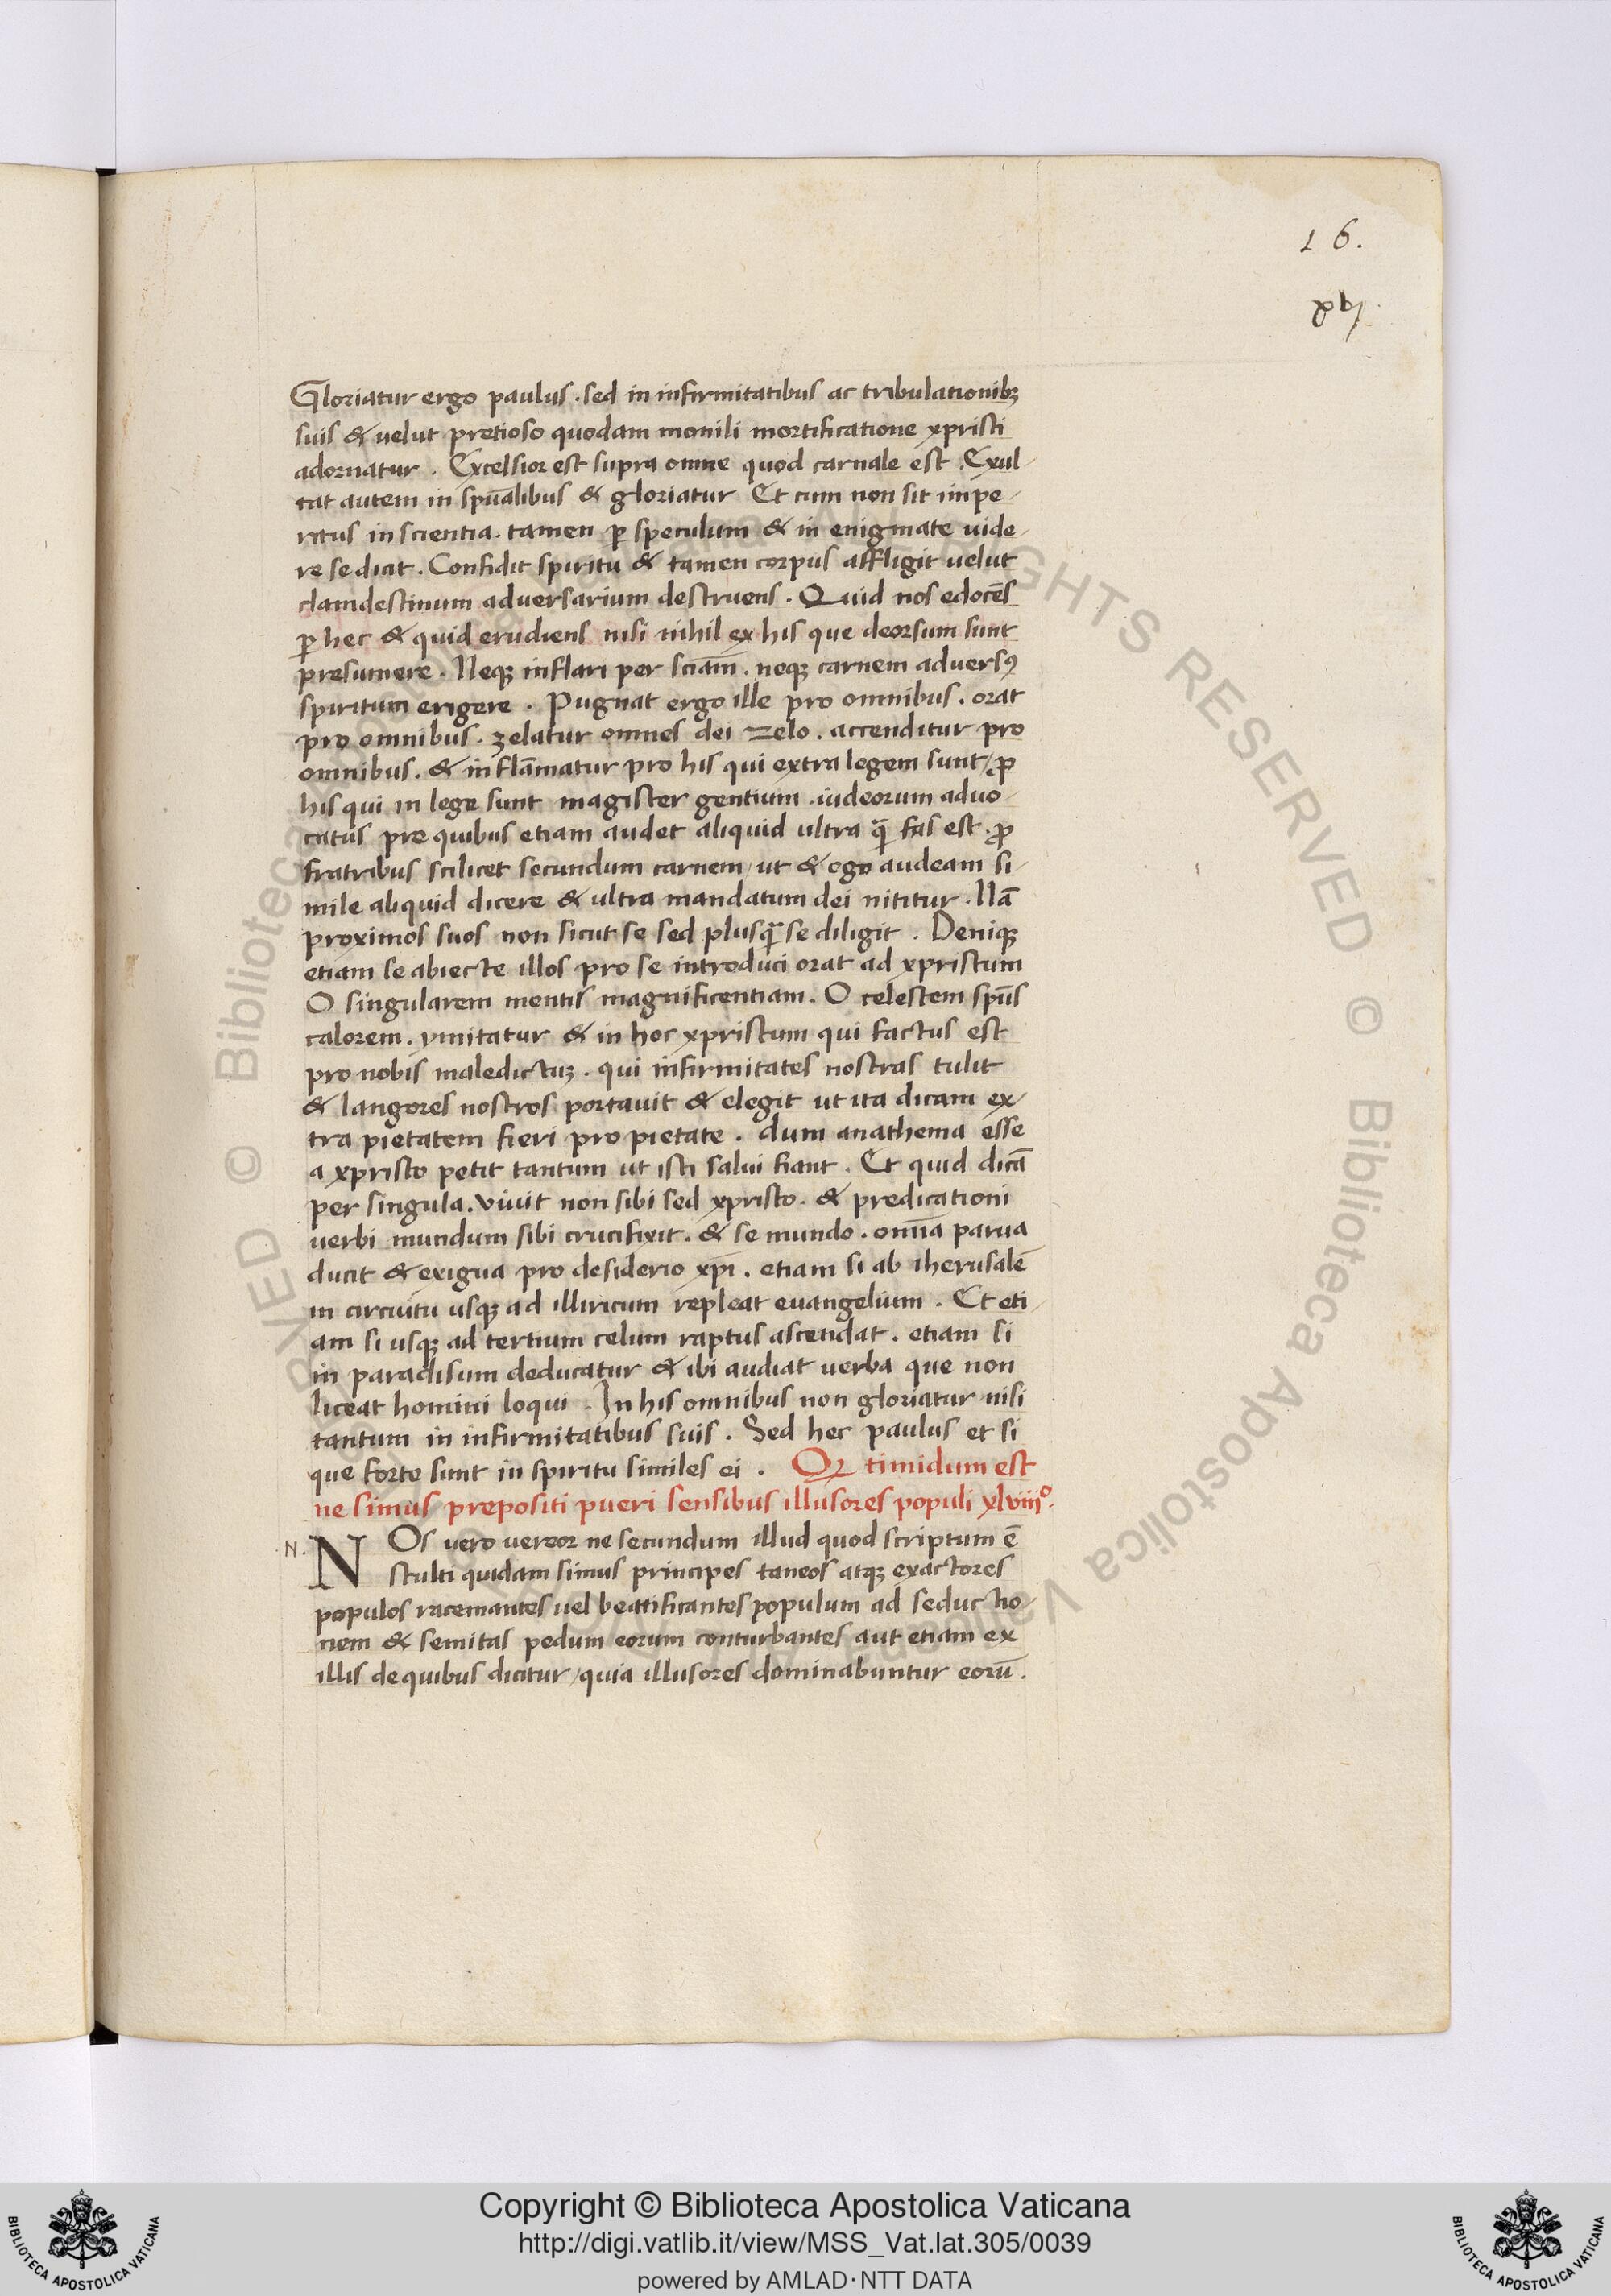 16.
Gloriatur ergo paulus . sed in infirmitatibus ac tribulationibꝫ
suis & uelut pretioso quodam monili mortificatione xpristi
adornatur . Excelsior est supra omne quod carnale est . Exul-
tat autem in spūalibus & gloriatur Et cum non sit impe-
ritus in scientia . tamen ꝑ speculum & in enigmate uide-
re se dicat . Confidit spiritu & tamen corpus affligit uelut
clamdestinum adversarium destruens . Quid nos edocēs
ꝑ hec & quid erudiens nisi nihil ex his que deorsum sunt
presumere . Neqꝫ inflari per sciam̄ . neqꝫ carnem adversꝯ
spiritum erigere . Pugnat ergo ille pro omnibus . orat
pro omnibus . zelatur omnes dei zelo . accenditur pro
omnibus . & inflāmatur pro his qui extra legem sunt / ꝓ
his qui in lege sunt magister gentium . iudeorum aduo-
catus pro quibus etiam audet aliquid ultra ꝙ̄ fas est . ꝓ
fratribus scilicet secundum carnem / ut & ego audeam si-
mile aliquid dicere & ultra mandatum dei nititur . Nā
proximos suos non sicut se sed plusꝙ̄ se diligit . Deniqꝫ
etiam se abiecte illos pro se introduci orat ad xpristum
O singularem mentis magnificentiam . O celestem spūs
calorem . ymitatur & in hoc xpristum qui factus est
pro nobis maledictuꝫ . qui infirmitates nostras tulit
& langores nostros portauit & elegit ut ita dicam ex-
tra pietatem fieri pro pietate . dum anathema esse
a xpristo petit tantum ut isti salui fiant . Et quid dicā
per singula . vivit non sibi sed xpristo . & predicationi
uerbi mundum sibi crucifixit . & se mundo . omīa parua
ducit & exigua pro desiderio xpī . etiam si ab iherusalē
in circuitu usqꝫ ad illiricum repleat euangelium . Et eti-
am si usqꝫ ad tertium celum raptus ascendat . etiam si
in paradisum deducatur & ibi audiat uerba que non
liceat homini loqui . In his omnibus non gloriatur nisi
tantum in infirmitatibus suis . Sed hec paulus et si
que forte sunt in spiritu similes ei . Qꝛ timidum est
ne simus prepositi pueri sensibus illusores populi xlviiiº .
.N. NOs uero uereor ne secundum illud quod scriptum ē
stulti quidam simus principes taneos atqꝫ exactores
populos racemantes uel beatificantes populum ad seductio-
nem & semitas pedum eorum conturbantes aut etiam ex
illis de quibus dicitur / quia illusores dominabuntur eorū .
© Biblioteca Apostolica Vaticana ALL RIGHTS RESERVED
Copyright © Biblioteca Apostolica Vaticana
http://digi.vatlib.it/view/MSS_Vat.lat.305/0039
powered by AMLAD·NTT DATA
BIBLIOTECA APOSTOLICA VATICANA
BIBLIOTECA APOSTOLICA VATICANA